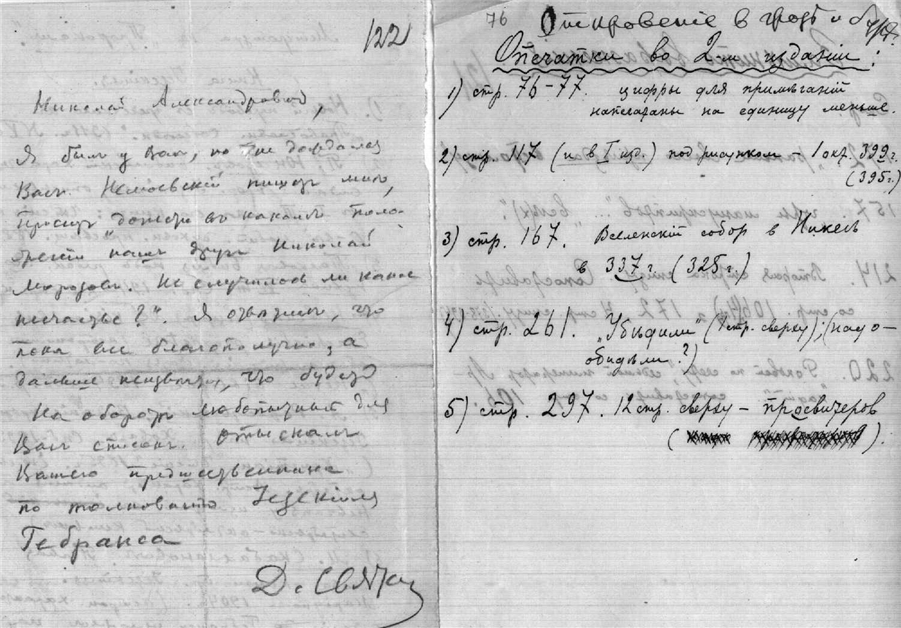 122
Николай Александрович,
Я былъ у Васъ, но не дождался
Васъ. Немоевскій пишетъ мнѣ,
проситъ "донести въ какомъ поло-
женіи нашъ другъ Николай
Морозовъ. Не случилось ли какое
несчастье?". Я отвѣтилъ, что
пока все благополучно, а
дальше неизвѣстно, что будетъ
На оборотѣ любопытный для
Васъ списокъ. Отыскалъ
Вашего предшественника
по толкованію Іезекіиля
Гебранса
Д. Святск
76 Откровеніе в грозѣ и бурѣ.
Опечатки во 2-м изданіи:
1) стр. 76-77. цифры для примѣчаній
напечатаны на единицу меньше.
2) стр. 117 (и в I изд.) под рисунком – 1 окт. 399 г.
(395 г.)
3) стр. 167. Вселенскій собор в Никеѣ
в 337 г. (325 г.)
4) стр. 261. "Убѣдили" (1 стр. сверху); (надо-
обидѣли?)
5) стр. 297. 12 стр. сверху – просвичеров
( ).